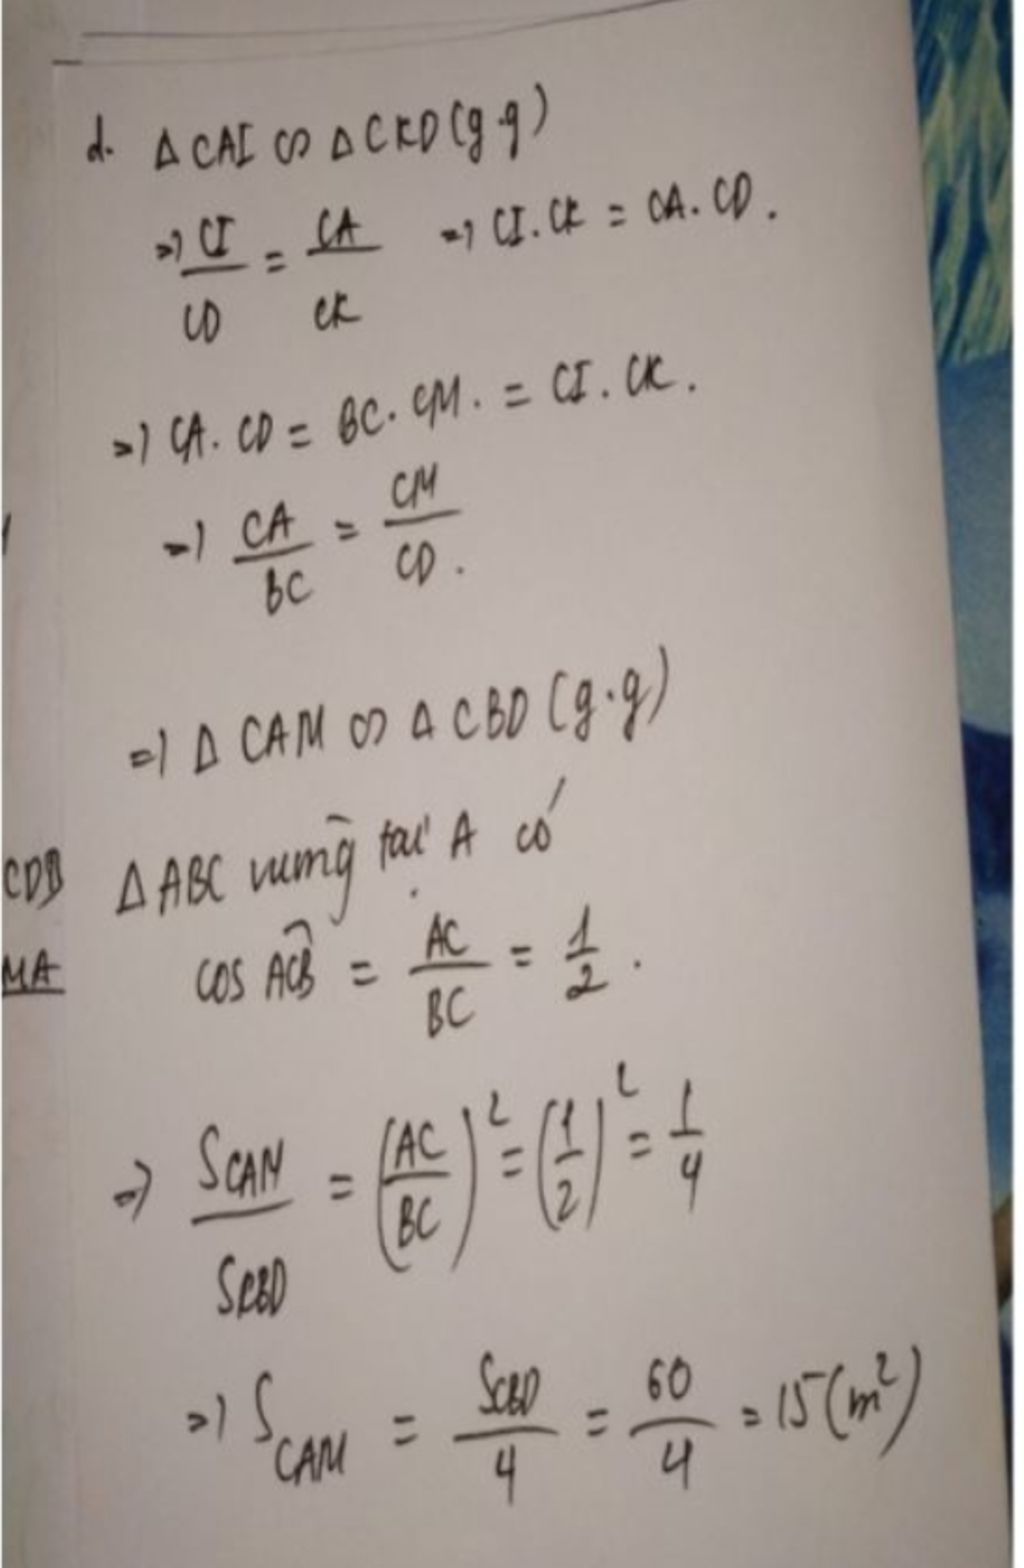 d. Δ CAI ∽ Δ CKD (g.g)
=) CI/CD = CA/CK =) CI.CK = CA.CD.
=) CA.CD = BC.CM. = CI.CK.
=) CA/BC = CM/CD.
=) Δ CAM ∽ Δ CBD (g.g)
CDB
Δ ABC vuông tại A có
MA
cos ACB = AC/BC = 1/2.
=> SCAM/SCBD = (AC/BC)² = (1/2)² = 1/4
=) SCAM = SCBD/4 = 60/4 = 15 (m²)